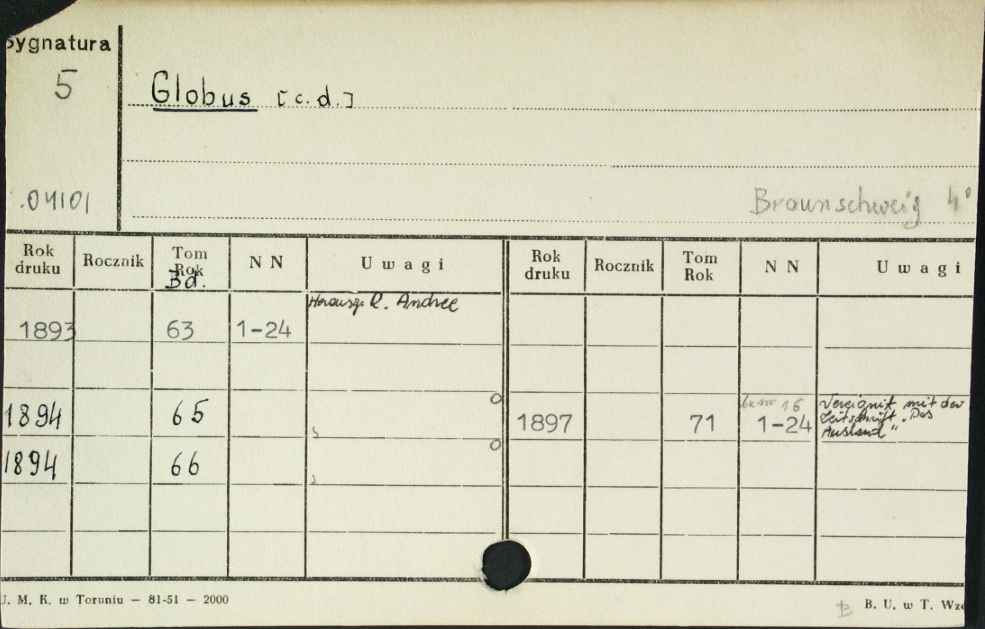 Sygnatura
5
Globus [c.d.]
.04101
Braunschweig 4°
Rok druku Rocznik Tom Rok Bd. N N Uwagi Rok druku Rocznik Tom Rok N N Uwagi
Herausg. R. Andree
1893 63 1-24
1894 65
1897 71 bez nr 16 1-24 Vereignit mit der Zeitschrift „Das Ausland"
1894 66
U. M. K. w Toruniu — 81-51 — 2000
B. U. w T. Wz